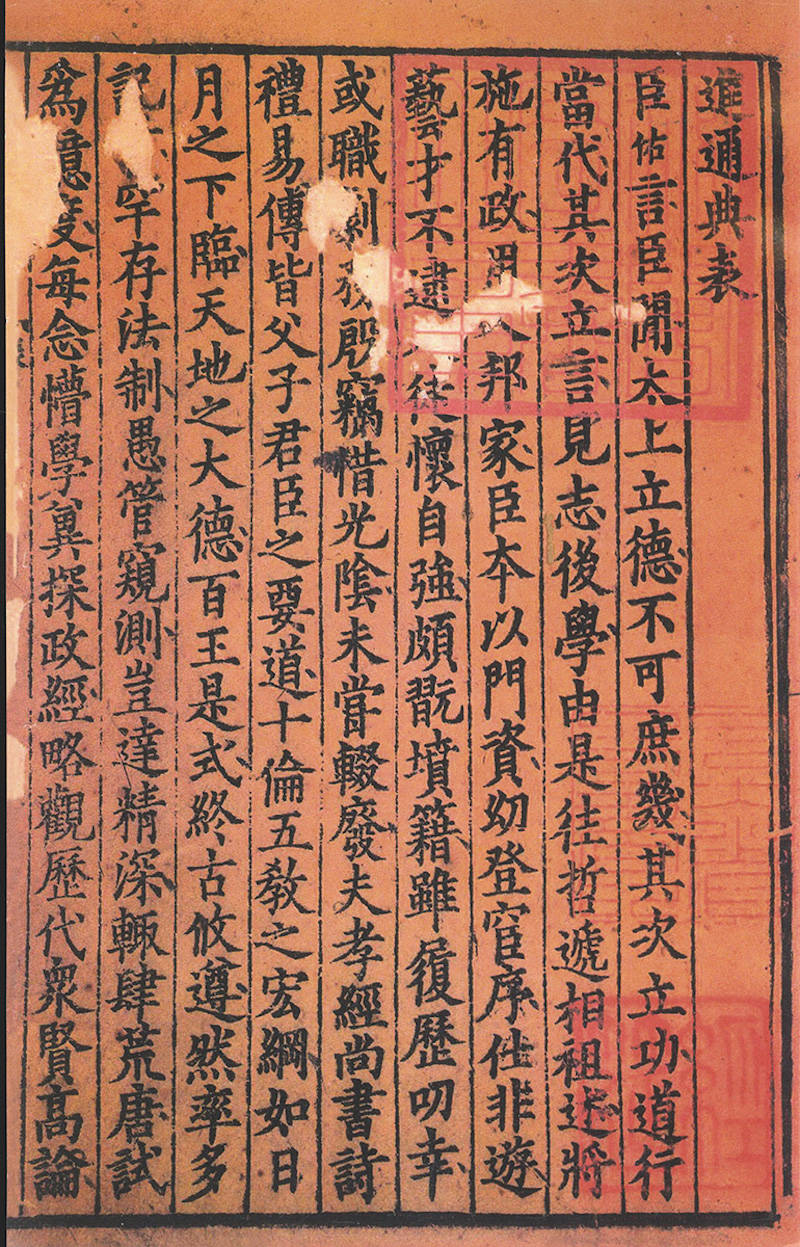 進通典表
臣佑言臣聞太上立德不可庶幾其次立功道行
當代其次立言見志後學由是往哲遞相祖述將
施有政用邦家臣本以門資幼登宦序仕非遊
藝才不逮徒懷自強頗翫墳籍雖履歷叨幸
或職劇務殷竊惜光陰未嘗輟廢夫孝經尚書詩
禮易傳皆父子君臣之要道十倫五教之宏綱如日
月之下臨天地之大德百王是式終古攸遵然率多
記罕存法制愚管窺測豈達精深輒肆荒唐試
爲憶度每念懵學冀探政經略觀歷代衆賢高論